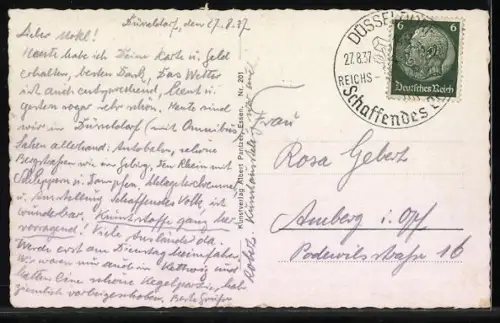 Düsseldorf, den 27.8.37
Lieber
Heute habe ich Deine Karte u. Geld
erhalten, besten Dank. Das Wetter
ist auch entsprechend, heut u.
gestern sogar sehr schön. Heute sind
wir in Düsseldorf (mit Omnibus)
Sahen allerhand: Autobahn, schöne
wie im Gebirg, den Rhein mit
Schleppern u. Dampfern,
u. Ausstellung Schaffendes Volk, ist
wunderbar, Kunststoffe ganz her-
vorragend! Viele Ausländer da.
Werde erst am Dienstag heimfahren.
Wir waren auch in Kettwig und
hatten eine schöne
Beste Grüße
Robert
Kunstverlag Albert Pantzer, Essen. Nr. 201
DÜSSELDORF
27.8.37
REICHS-
Schaffendes
6 6
Deutsches Reich
Frau
Rosa Gebert
Amberg i. Opf
Podewilsstraße 16